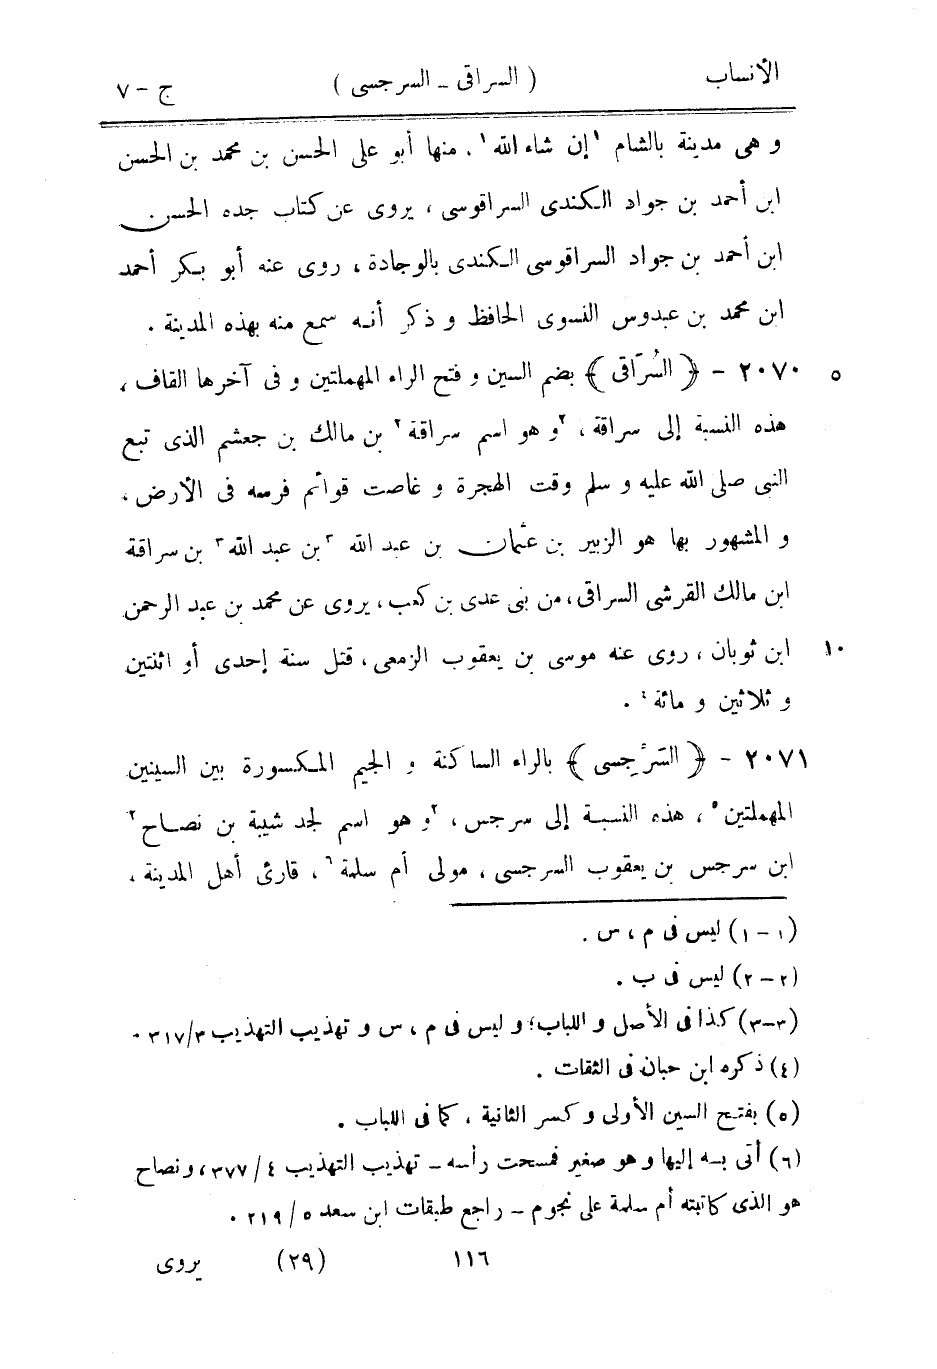 الأنساب ( السراقى – السرجسى ) ج – ٧
و هى مدينة بالشام ١إن شاء الله١ . منها أبو على الحسن بن محمد بن الحسن
ابن أحمد بن جواد الكندى السراقوسى ، يروى عن كتاب جده الحسن
ابن أحمد بن جواد السراقوسى الكندى بالوجادة ، روى عنه أبو بكر أحمد
ابن محمد بن عبدوس النسوى الحافظ و ذكر أنه سمع منه بهذه المدينة .
٢٠٧٠ – ﴿ السُرَاقى ﴾ بضم السين و فتح الراء المهملتين و فى آخرها القاف ، ٥
هذه النسبة إلى سراقة ، ٢و هو اسم سراقة٢ بن مالك بن جعشم الذى تبع
النبى صلى الله عليه و سلم وقت الهجرة و غاصت قوائم فرسه فى الأرض ،
و المشهور بها هو الزبير بن عثمان بن عبد الله ٣بن عبد الله٣ بن سراقة
ابن مالك القرشى السراقى ، من بنى عدى بن كعب ، يروى عن محمد بن عبد الرحمن
ابن ثوبان ، روى عنه موسى بن يعقوب الزمعى ، قتل سنة إحدى أو اثنتين ١٠
و ثلاثين و مائة٤ .
٢٠٧١ – ﴿ السَرْجِسى ﴾ بالراء الساكنة و الجيم المكسورة بين السينين
المهملتين٥ ، هذه النسبة إلى سرجس ، ٢و هو اسم لجد شيبة بن نصاح٢
ابن سرجس بن يعقوب السرجسى ، مولى أم سلمة٦ ، قارئ أهل المدينة ،
(١ – ١) ليس فى م ، س .
(٢ – ٢) ليس فى ب .
(٣–٣) كذا فى الأصل و اللباب؛ و ليس فى م ، س و تهذيب التهذيب ٣/‏٣١٧ .
(٤) ذكره ابن حبان فى الثقات .
(٥) بفتح السين الأولى و كسر الثانية ، كما فى اللباب .
(٦) أتى به إليها و هو صغير فمسحت رأسه – تهذيب التهذيب ٤/‏٣٧٧ ، و نصاح
هو الذى كاتبته أم سلمة على نجوم – راجع طبقات ابن سعد ٥/‏٢١٩ .
١١٦ (٢٩) يروى